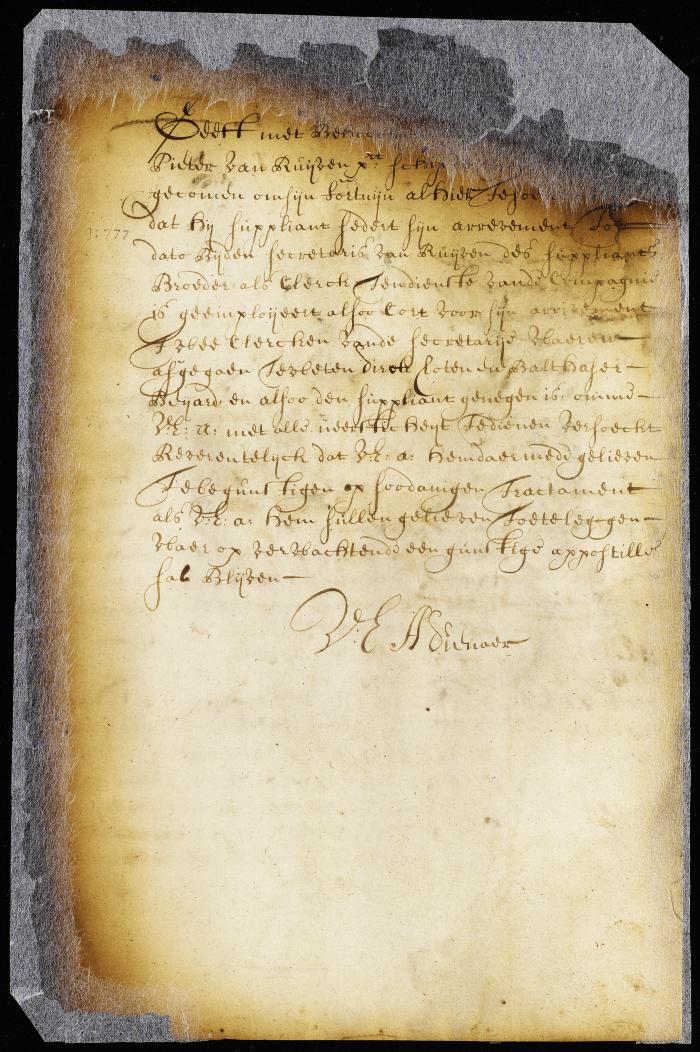 Geeft met Behoor
Pieter van Ruijven pr. schip
gecomen om sijn fortuijn alhier Te soe
dat hij suppliant sedert sijn arrivement Tot
dato Bijden secretaris van Ruijven des suppliants
Broeder als Clerck Ten dienste vande Compagnie
is geeimploijeert alsoo Cort voor sijn arrivement
Twee Clercken vande secretarije waeren
afgegaen Te weten dirck looten en Balthaser
Beyard en alsoo den suppliant genegen is omme
VE: a: met alle neersticheyt Te dienen versoeckt
Reverentelyck dat VE: a: hem daer mede gelieven
Te begunstigen op soodanigen Tractament
als VE: a: hem sullen gelieven Toe te leggen
waer op verwachtende een gunstige appostille
sal Blijven
VE A dienaer